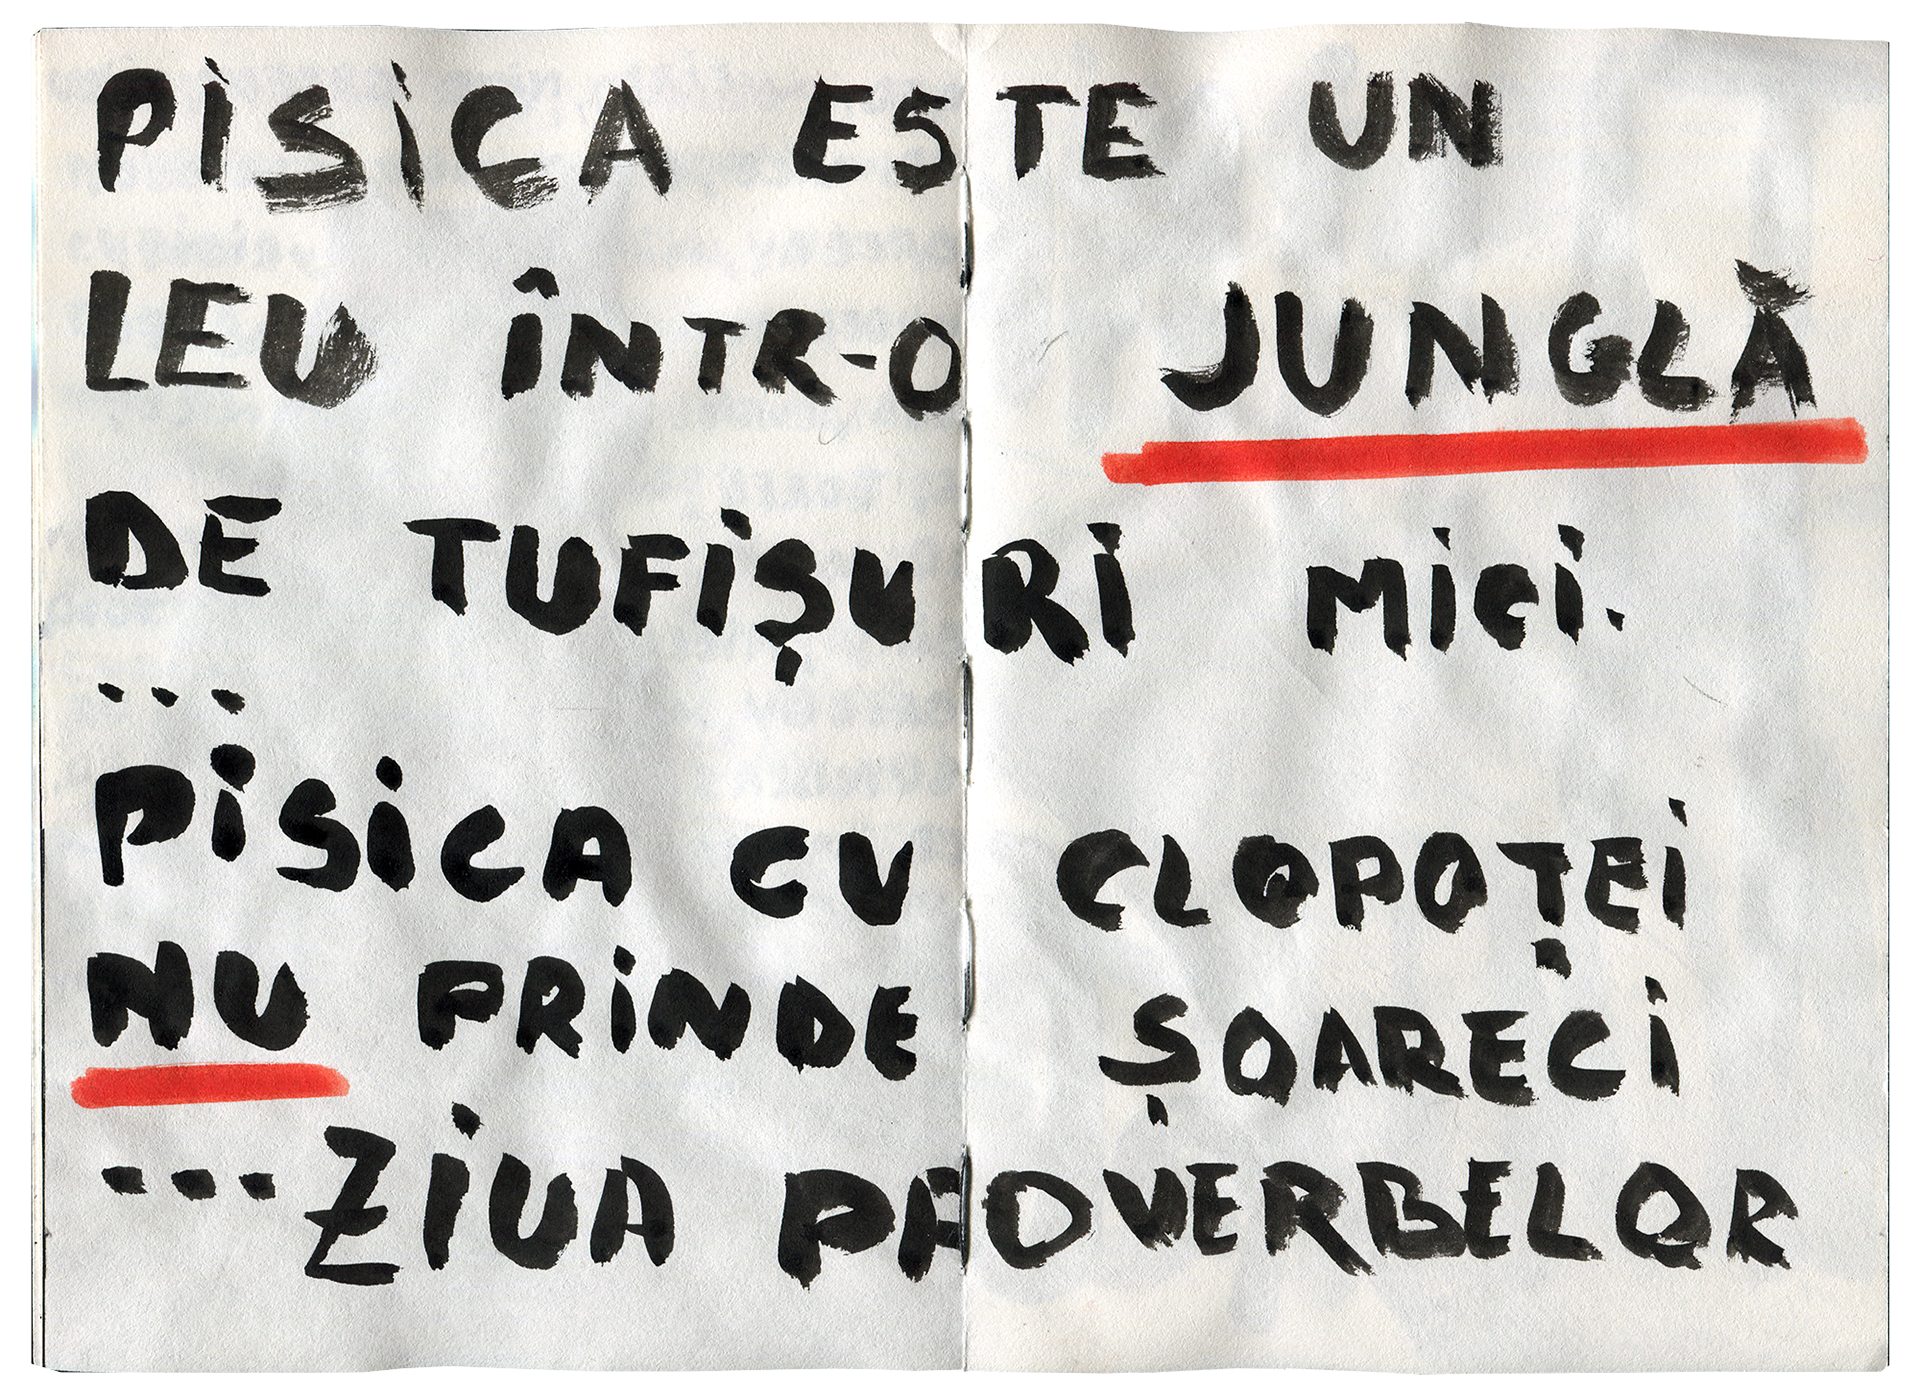 PISICA ESTE UN
LEU ÎNTR-O JUNGLĂ
DE TUFIȘURI MICI.
...
PISICA CU CLOPOȚEI
NU PRINDE ȘOARECI
...ZIUA PROVERBELOR